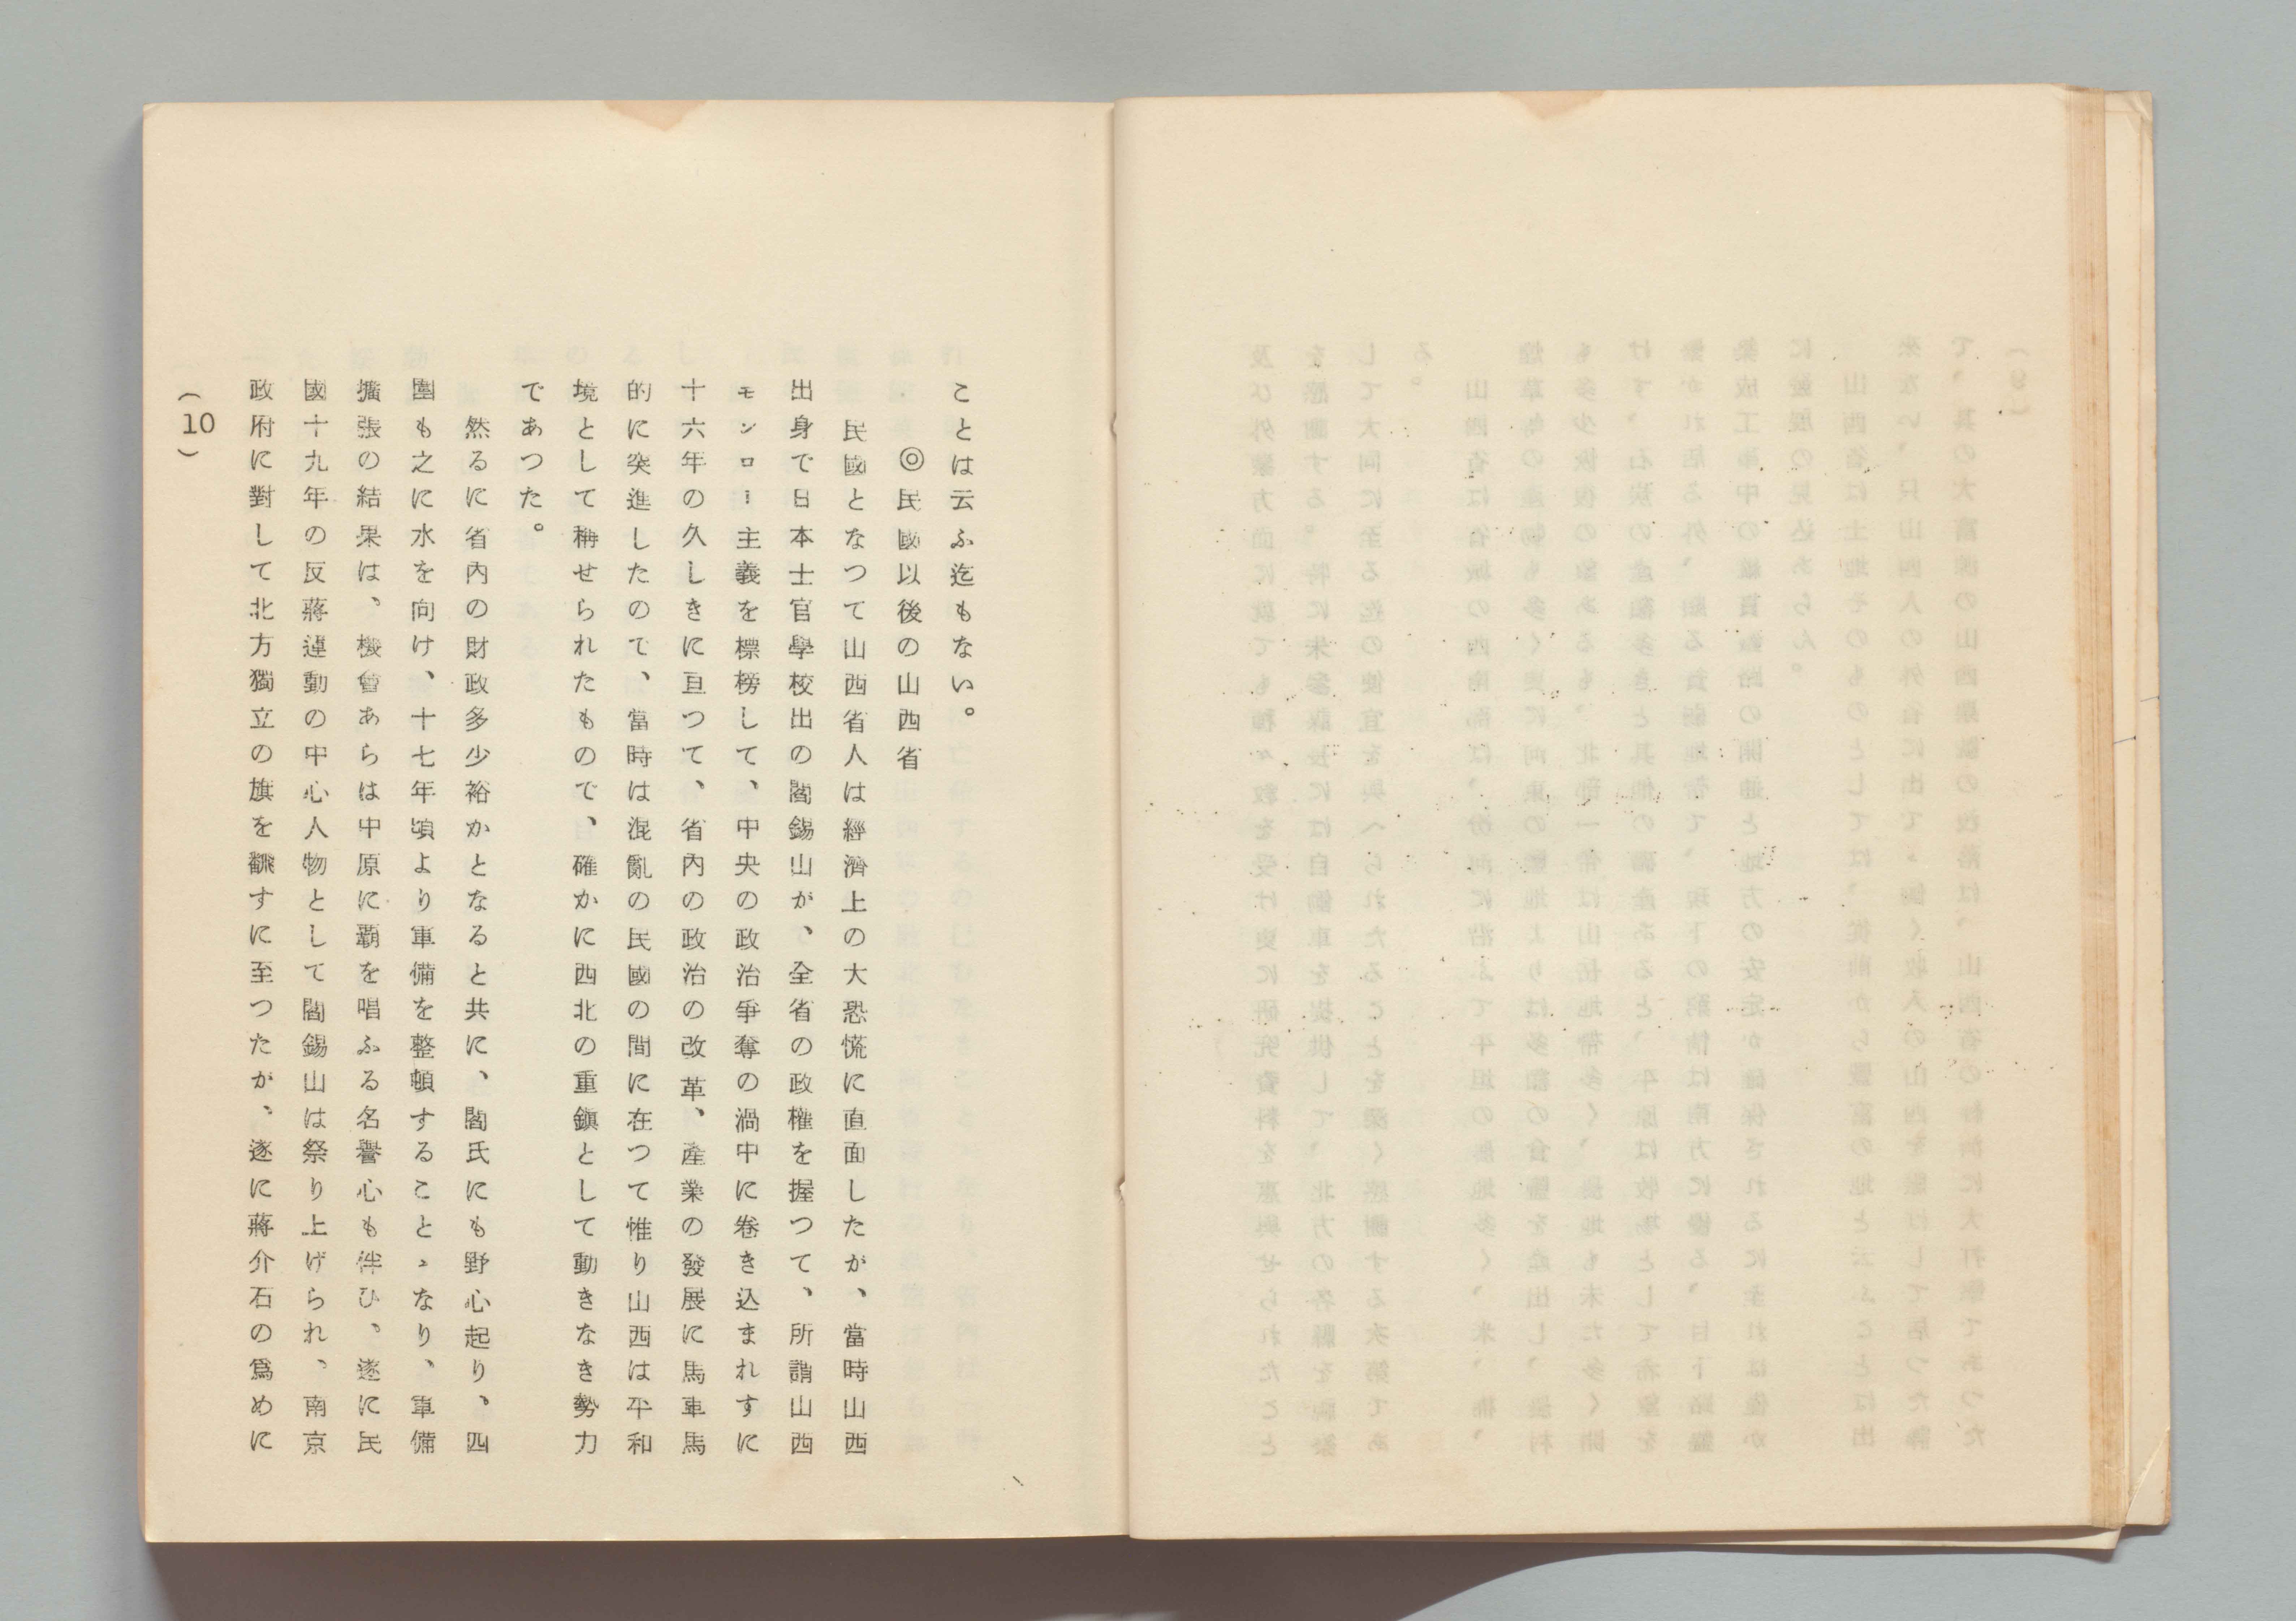 ことは云ふ迄もない。
◎民國以後の山西省
民國となつて山西省人は經濟上の大恐慌に直面したが、當時山西
出身で日本士官學校出の閻錫山が、全省の政權を握つて、所謂山西
モンロー主義を標榜して、中央の政治爭奪の渦中に卷き込まれすに
十六年の久しきに亘つて、省內の政治の改革、產業の發展に馬車馬
的に突進したので、當時は混亂の民國の間に在つて惟り山西は平和
境として稱せられたもので、確かに西北の重鎭として動きなき勢力
であつた。
然るに省內の財政多少裕かとなると共に、閻氏にも野心起り、四
圍も之に水を向け、十七年頃より軍備を整頓することゝなり、軍備
擴張の結果は、機會あらは中原に覇を唱ふる名譽心も伴ひ、遂に民
國十九年の反蔣運動の中心人物として閻錫山は祭り上げられ、南京
政府に對して北方獨立の旗を飜すに至つたが、遂に蔣介石の爲めに
(10)